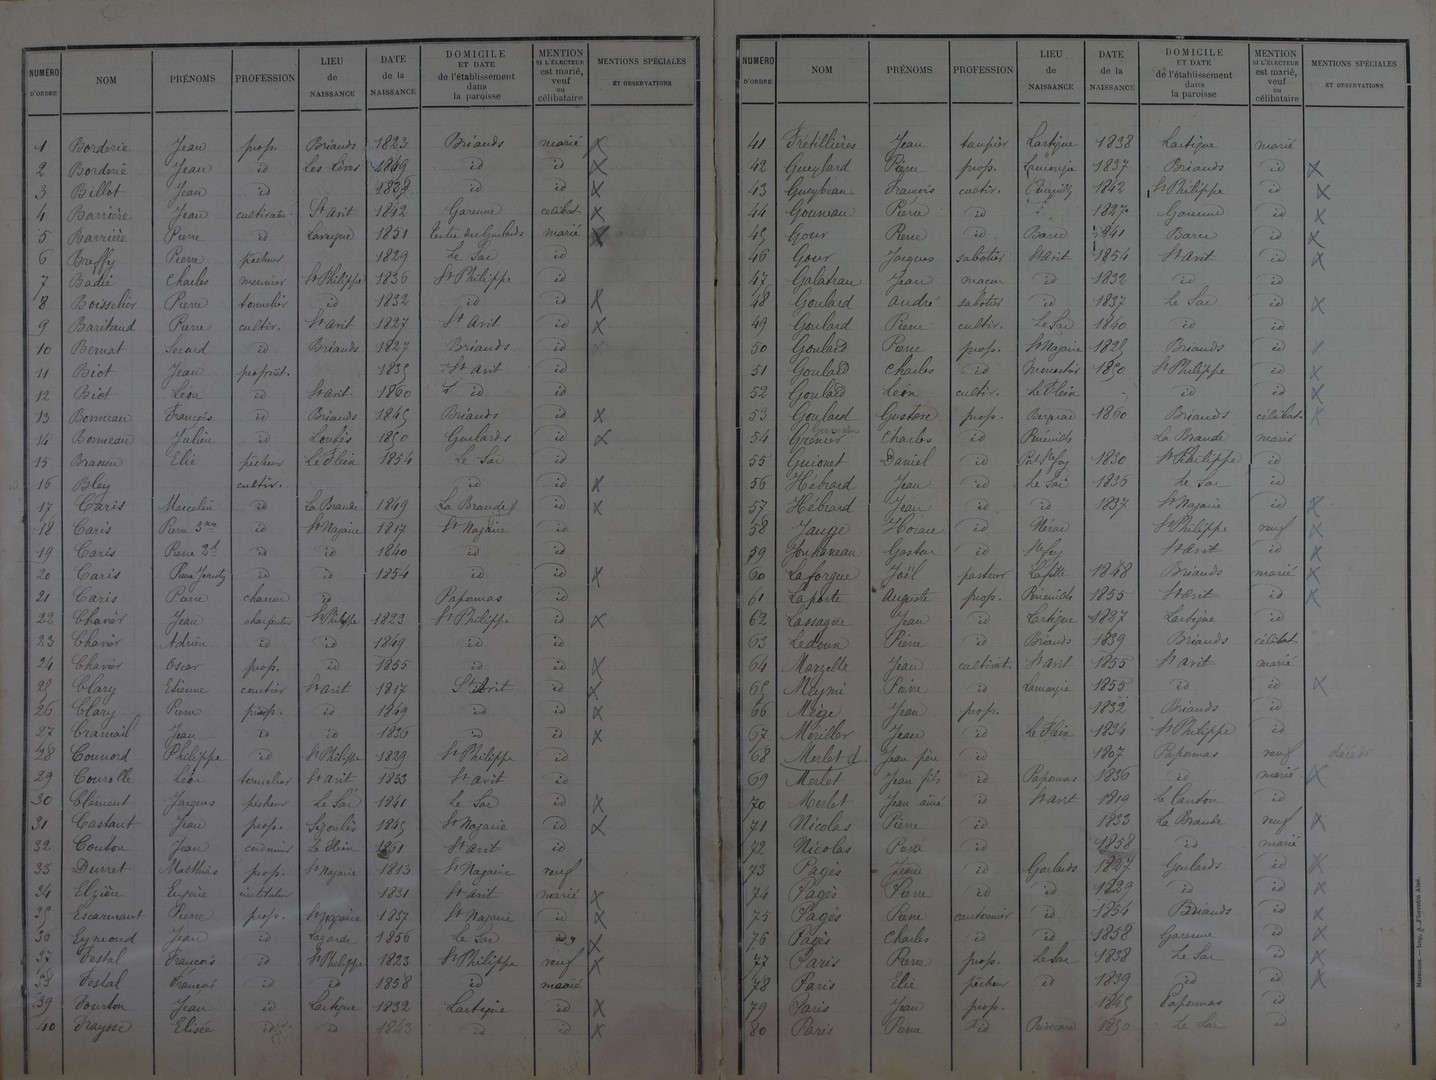 NUMÉRO D'ORDRE NOM PRÉNOMS PROFESSION LIEU de NAISSANCE DATE de la NAISSANCE DOMICILE ET DATE de l'établissement dans la paroisse MENTION SI L'ÉLECTEUR est marié, veuf ou célibataire MENTIONS SPÉCIALES ET OBSERVATIONS
1 Borderie Jean prop. Briands 1823 Briands marié X
2 Borderie Jean id Les Cors 1849 id id X
3 Billot Jean id id id X
4 Barrière Jean St Avit 1842 Garenne célibat. X
5 Barrière Pierre id Lavergne 1851 Tertre des Goulards marié X
6 Pierre pécheur 1829 Le Sac id
7 Badié Charles meunier St Philippe 1836 St Philippe id
8 Boisselier Pierre tonnelier id 1832 id id X
9 Baritaud Pierre cultiv. St Avit 1827 St Avit id X
10 Bernat id Briands 1827 Briands id
11 Biot Jean propriét. 1835 St Avit id
12 Biot Léon id St Avit 1860 id id
13 Bonneau François id Briands 1845 Briands id X
14 Bonneau Julien id 1850 Goulards id X
15 Elie pécheur Le Fleix 1854 Le Sac id
16 Bley cultiv. id id X
17 Caris Marcelin id La Brande 1849 La Brande id X
18 Caris Pierre id St Nazaire 1817 St Nazaire id
19 Caris Pierre 2d id id 1840 id id
20 Caris id id 1854 id id X
21 Caris Pierre id Papomas id
22 Chavier Jean charpentier St Philippe 1823 St Philippe id X
23 Chavier Adrien id id 1849 id id
24 Chavier Oscar prop. id 1855 id id X
25 Clary Etienne St Avit 1817 St Avit id X
26 Clary Pierre prop. id 1849 id id X
27 Cramail Jean id id 1836 id id X
28 Counord Philippe id St Philippe 1829 St Philippe id
29 Courolle Léon tonnelier St Avit 1833 St Avit id
30 Clément Jacques pécheur Le Sac 1841 Le Sac id X
31 Castant Jean prop. Sigoulès 1845 St Nazaire id X
32 Couton Jean cordonnier Le Fleix St Avit id
33 Durret Matthias prop. St Nazaire 1813 St Nazaire veuf
34 Elzière Eugène instituteur 1831 St Avit marié X
35 Escarmant Pierre prop. St Nazaire 1837 St Nazaire id X
36 Eymond Jean id Lagarde 1856 Le Sac id X
37 Festal François id St Philippe 1823 St Philippe veuf X
38 Festal François id id 1858 id marié
39 Fourton Jean id Lartigue 1832 Lartigue id X
40 Fraysse Elisée id id 1843 id id X
NUMÉRO D'ORDRE NOM PRÉNOMS PROFESSION LIEU de NAISSANCE DATE de la NAISSANCE DOMICILE ET DATE de l'établissement dans la paroisse MENTION SI L'ÉLECTEUR est marié, veuf ou célibataire MENTIONS SPÉCIALES ET OBSERVATIONS
41 Frétillières Jean taupier Lartigue 1838 Lartigue marié
42 Gueylard Pierre prop. 1837 Briands id X
43 Gueybeau François cultiv. 1842 St Philippe id X
44 Gouneau Pierre id 1827 Garenne id X
45 Gour Pierre id Barie 1841 Barie id X
46 Gour Jacques sabotier St Avit 1854 St Avit id X
47 Jean macon id 1832 id id
48 Goulard André sabotier id 1837 Le Sac id X
49 Goulard Pierre cultiv. Le Sac 1840 id id
50 Goulard Pierre prop. St Nazaire 1825 Briands id X
51 Goulard Charles id 1850 St Philippe id X
52 Goulard Léon cultiv. Le Fleix id id X
53 Goulard Gustave prop. Bergerac 1860 Briands célibat. X
54 Grenier Charles id La Brande marié
55 Guionet Daniel id Port Ste foy 1830 St Philippe id
56 Hébrard Jean id Le Sac 1835 Le Sac id
57 Hébrard Jean id id 1837 St Nazaire id X
58 Jauge Horace id Nérac St Philippe veuf X
59 Gaston id Ste foy St Avit id X
60 Laforgue Joël pasteur Lafitte 1848 Briands marié X
61 Laporte Auguste prop. 1855 St Avit id X
62 Lassagne Jean id Lartigue 1827 Lartigue id
63 Ledoux Pierre id Briands 1839 Briands célibat
64 Marzelle Jean cultivat. St Avit 1855 St Avit marié
65 Meymi Pierre id Lamonzie 1855 id id X
66 Mège Jean prop. 1832 Briands id
67 Meriller Jean id Le Fleix 1834 St Philippe id
68 Merlet d. Jean père id 1807 Papomas veuf décédé
69 Merlet Jean fils id Papomas 1836 id marié X
70 Merlet Jean aîné id St Avit 1819 Le Canton id
71 Nicolas Pierre id 1833 La Brande veuf X
72 Nicolas Pierre id 1858 id marié
73 Pagès Jean id Goulards 1827 Goulards id X
74 Pagès Pierre id id 1829 id id X
75 Pagès Pierre cantonnier id 1854 Briands id X
76 Pagès Charles id id 1858 Garenne id X
77 Paris Pierre prop. Le Sac 1838 Le Sac id X
78 Paris Elie pécheur id 1839 id id X
79 Paris Jean prop. 1845 Papomas id
80 Paris Pierre id 1850 Le Sac id
Marmande. — Imp. A. Flouroux Aîné.